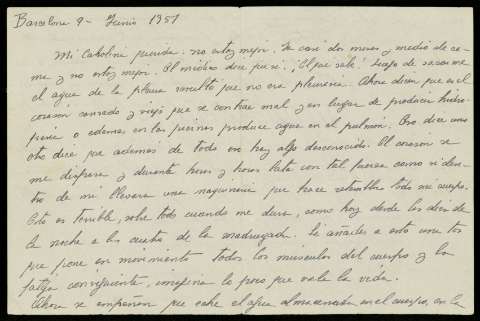 Barcelona 9 - Junio 1951
Mi Carolina querida: no estoy mejor. Ya casi dos meses y medio de ca-
ma y no estoy mejor. El médico dice que sí. ¡El que sabe! Luego de sacarme
el agua de la pleura resultó que no era pleuresia. Ahora dicen que es el
corazón cansado y viejo que se contrae mal y en lugar de producir hidro-
pesia o edema en las piernas produce agua en el pulmón. Eso dice uno
otro dice que además de todo en hay algo desconocido. El corazón se
me dispara y durante horas y horas late con tal fuerza como si den-
tro de mi llevara una maquinaria que hace retemblar todo mi cuerpo.
Esto es terrible, sobre todo cuando me dura, como hoy desde las diez de
la noche a las cuatro de la madrugada. Si añades a esto una tos
que pone en movimiento todos los músculos del cuerpo y la
fatiga consiguiente, imagina lo poco que vale la vida.
Ahora se empeñan que eche el agua almacenada en el cuerpo, en la